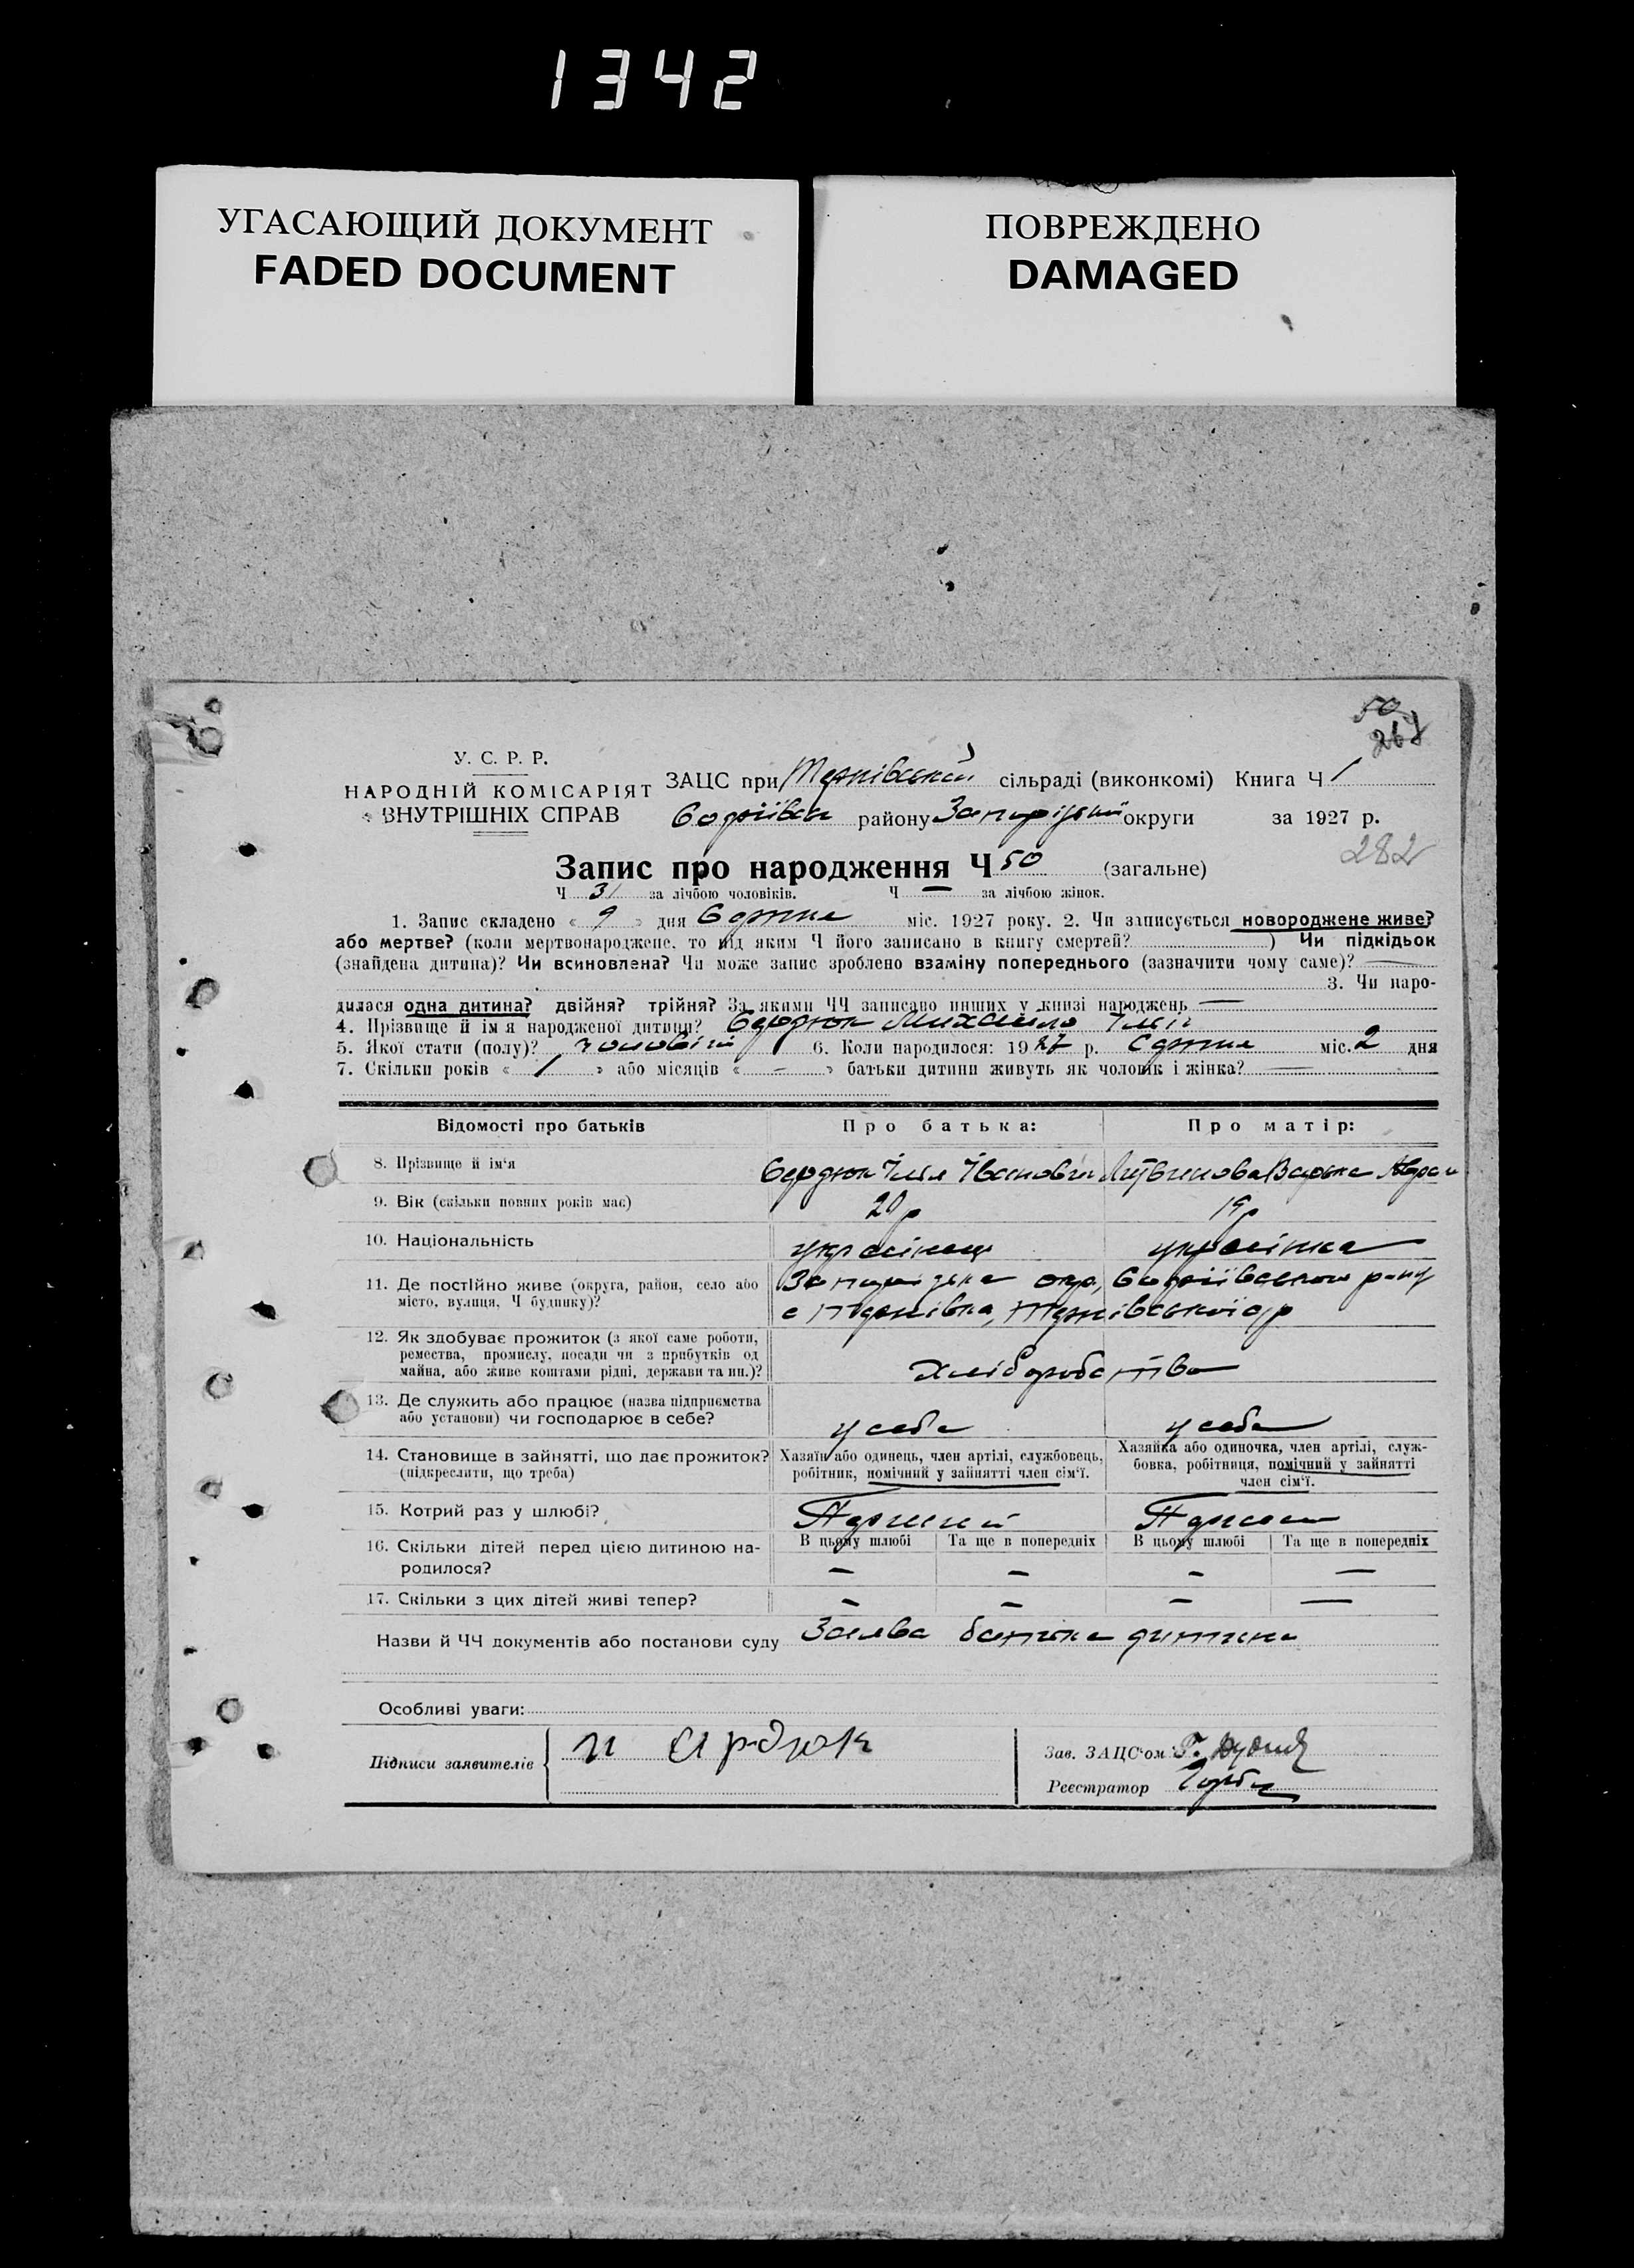 1342
УГАСАЮЩИЙ ДОКУМЕНТ
FADED DOCUMENT
ПОВРЕЖДЕНО
DAMAGED
50
У. С. Р. Р.
НАРОДНІЙ КОМІСАРІЯТ
ВНУТРІШНІХ СПРАВ
ЗАЦС при Тернівській сільраді (виконкомі) Книга Ч 1
району округи за 1927 р.
282
Запис про народження Ч 50 (загальне)
Ч 31 за лічбою чоловіків. Ч — за лічбою жінок.
1. Запис складено « 9 » дня Серпня міс. 1927 року. 2. Чи записується новороджене живе?
або мертве? (коли мертвонароджене, то під яким Ч його записано в книгу смертей? ) Чи підкідьок
(знайдена дитина)? Чи всиновлена? Чи може запис зроблено взаміну попереднього (зазначити чому саме)? —
3. Чи наро-
дилася одна дитина? двійня? трійня? За якими ЧЧ записано инших у книзі народжень —
4. Прізвище й ім'я народженої дитини? Сердюк Михайло Ілліч
5. Якої стати (полу)? чоловічої 6. Коли народилося: 1927 р. Серпня міс. 2 дня
7. Скільки років « 1 » або місяців « - » батьки дитини живуть як чоловік і жінка? —
Відомості про батьків
Про батька:
Про матір:
8. Прізвище й ім'я
Сердюк Ілля Іванович
Литвинова Варька
9. Вік (скільки повних років має)
20 р
19 р
10. Національність
українець
українка
11. Де постійно живе (округа, район, село або
місто, вулиця, Ч будинку)?
Запорізька окр,
с Тернівка, Тернівської с/р
12. Як здобуває прожиток (з якої саме роботи,
ремества, промислу, посади чи з прибутків од
майна, або живе коштами рідні, держави та ин.)?
хліборобство
13. Де служить або працює (назва підприємства
або установи) чи господарює в себе?
у себе
у себе
14. Становище в зайнятті, що дає прожиток?
(підкреслити, що треба)
Хазяїн або одинець, член артілі, службовець,
робітник, помічний у зайнятті член сім'ї.
Хазяйка або одиночка, член артілі, служ-
бовка, робітниця, помічний у зайнятті
член сім'ї.
15. Котрий раз у шлюбі?
Перший
Перший
16. Скільки дітей перед цією дитиною на-
родилося?
В цьому шлюбі Та ще в попередніх В цьому шлюбі Та ще в попередніх
— — — —
17. Скільки з цих дітей живі тепер?
— — — —
Назви й ЧЧ документів або постанови суду Заява батька дитини
Особливі уваги:
Підписи заявителів
Зав. ЗАЦС'ом
Реєстратор